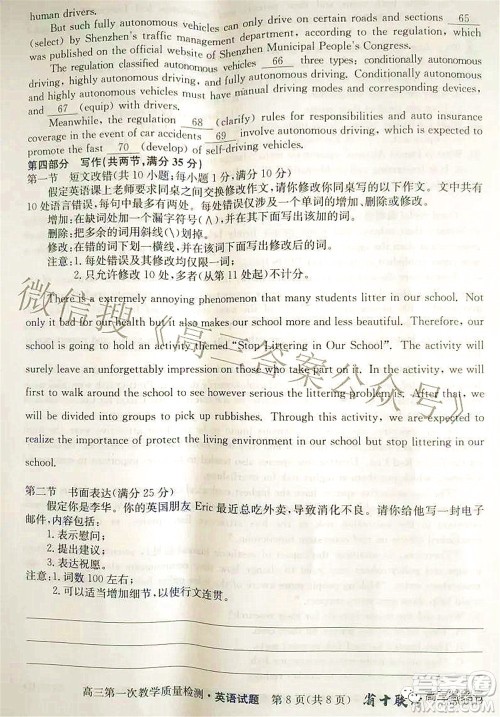 human drivers.
But such fully autonomous vehicles can only drive on certain roads and sections 65
(select) by Shenzhen's traffic management department, according to the regulation, which
was published on the official website of Shenzhen Municipal People's Congress.
The regulation classified autonomous vehicles 66 three types: conditionally autonomous
driving, highly autonomous driving, and fully autonomous driving. Conditionally autonomous
and highly autonomous vehicles must have manual driving modes and corresponding devices,
and 67 (equip) with drivers.
Meanwhile, the regulation 68 (clarify) rules for responsibilities and auto insurance
coverage in the event of car accidents 69 involve autonomous driving, which is expected to
promote the fast 70 (develop) of self-driving vehicles.
第四部分 写作(共两节,满分 35 分)
第一节 短文改错(共 10 小题,每小题 1 分,满分 10 分)
假定英语课上老师要求同桌之间交换修改作文,请你修改你同桌写的以下作文。文中共有
10 处语言错误,每句中最多有两处。每处错误仅涉及一个单词的增加、删除或修改。
增加:在缺词处加一个漏字符号(∧),并在其下面写出该加的词。
删除:把多余的词用斜线(\)划掉。
修改:在错的词下划一横线,并在该词下面写出修改后的词。
注意:1. 每处错误及其修改均仅限一词;
2. 只允许修改 10 处,多者(从第 11 处起)不计分。
There is a extremely annoying phenomenon that many students litter in our school. Not
only it bad for our health but also makes our school more and more messy. Therefore, our
school is going to hold an activity themed “Stop Littering in Our School”. The activity will
surely leave an unforgettably impression on those who take part on it. In the activity, we
first will walk around the school to see whether some serious problem exists. After that, we
will be divided into groups to pick up rubbishes. Through this activity, we are expected to
realize the importance of protect the living environment in our school but stop littering in our
school.
微信搜《高三答案公众号》
第二节 书面表达(满分 25 分)
假定你是李华。你的英国朋友 Eric 最近总吃外卖,导致消化不良。请你给他写一封电子
邮件,内容包括:
1. 表示慰问;
2. 提出建议;
3. 表达祝愿。
注意:1. 词数 100 左右;
2. 可以适当增加细节,以使行文连贯。
高三第一次教学质量检测·英语试题 第 8 页(共 8 页) 省十联